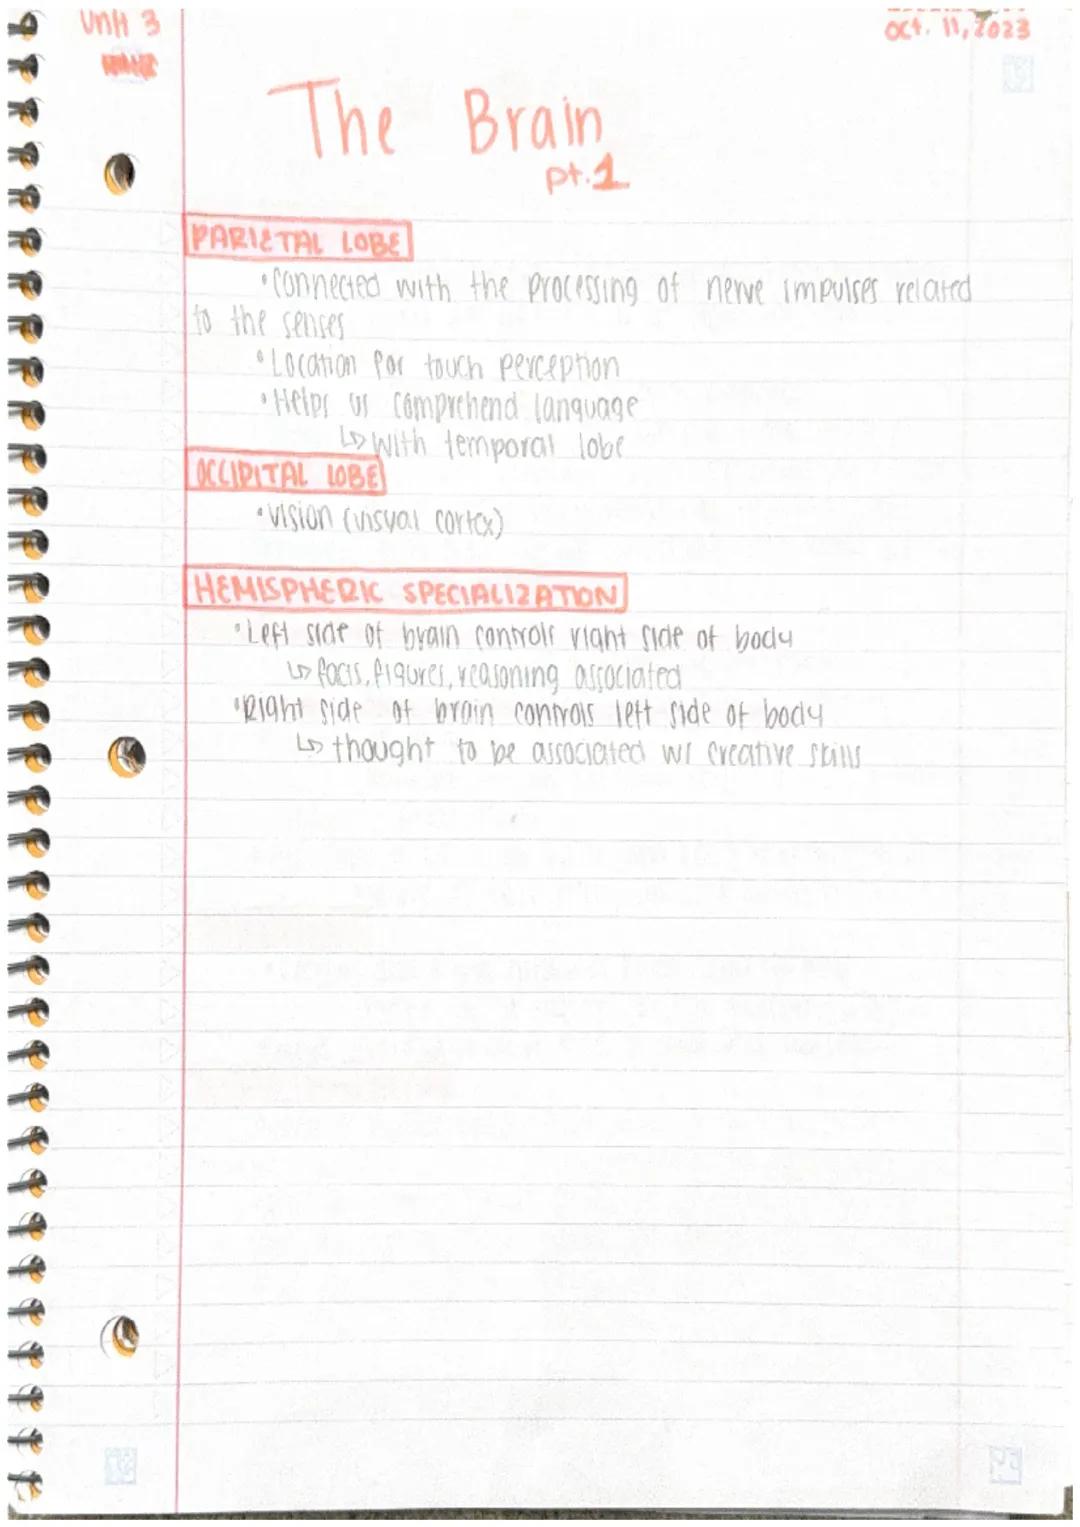 Unit 3
Oct. 11, 2023
The Brain
pt.1
PARIETAL LOBE
•Connected with the processing of nerve impulses related
to the senses
•Location for touch perception
•Helps us comprehend language
↳ with temporal lobe
OCCIPITAL LOBE
•vision (visual cortex)
HEMISPHERIC SPECIALIZATION
•Left side of brain controls right side of body
↳ facts, figures, reasoning associated
•Right side of brain controls left side of body
↳ thought to be associated w/ creative skills